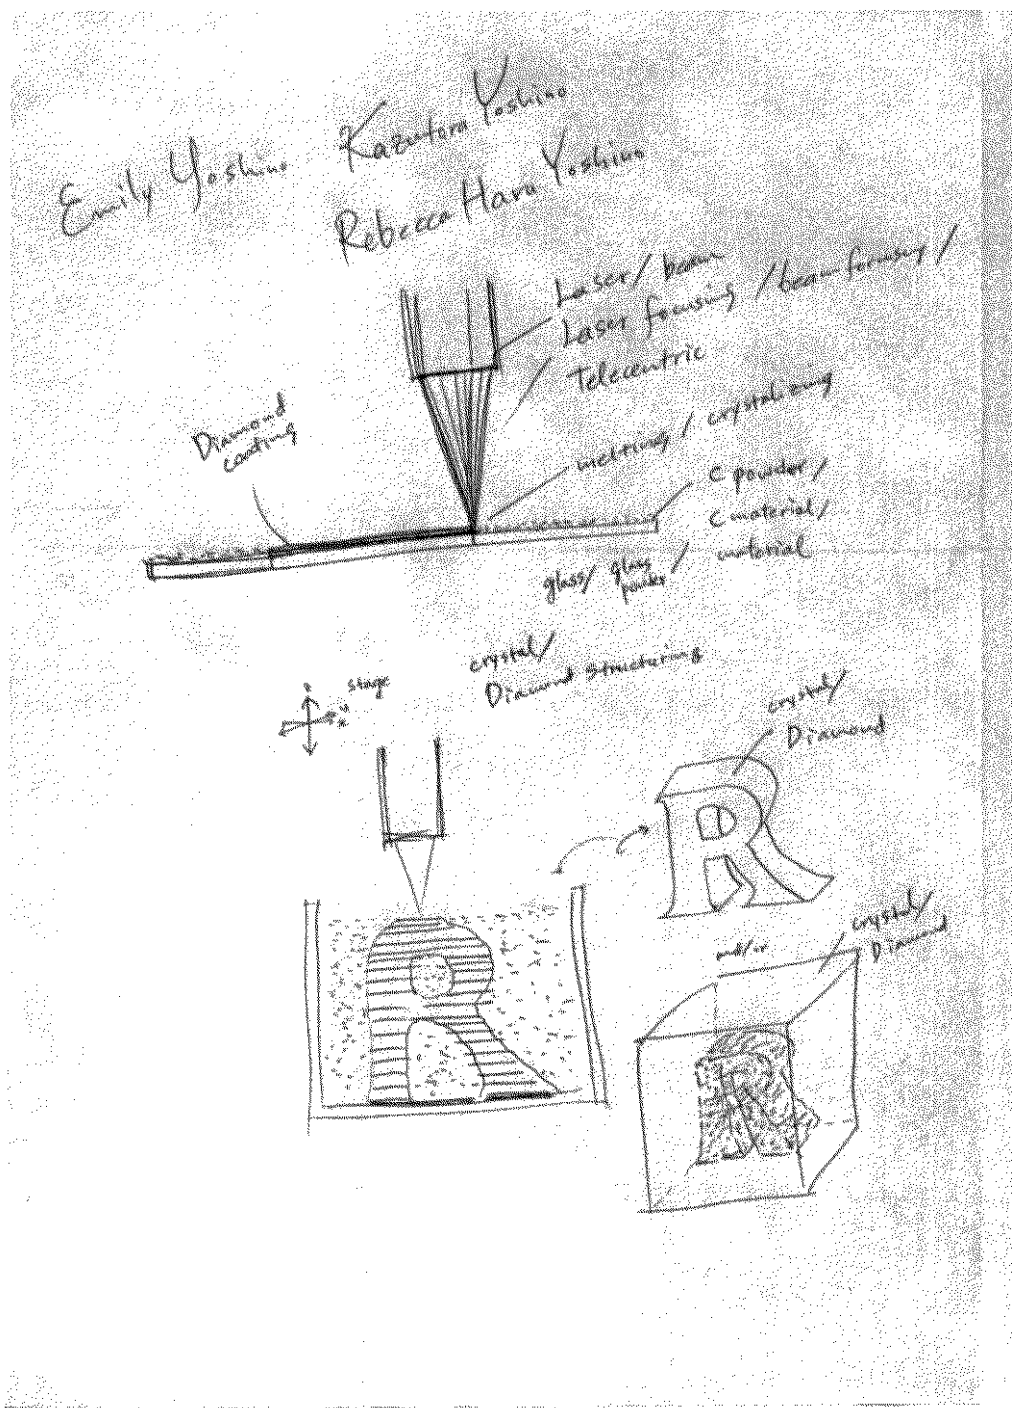 Emily Yoshino
Kazutora Yoshino
Rebecca Haru Yoshino
Laser / beam
Laser focusing / beam focusing /
Telecentric
Diamond
coating
melting / crystalizing
C powder /
C material /
material
glass / glass powder /
crystal /
Diamond Structuring
stage
crystal /
Diamond
R
and/or
crystal /
Diamond
R